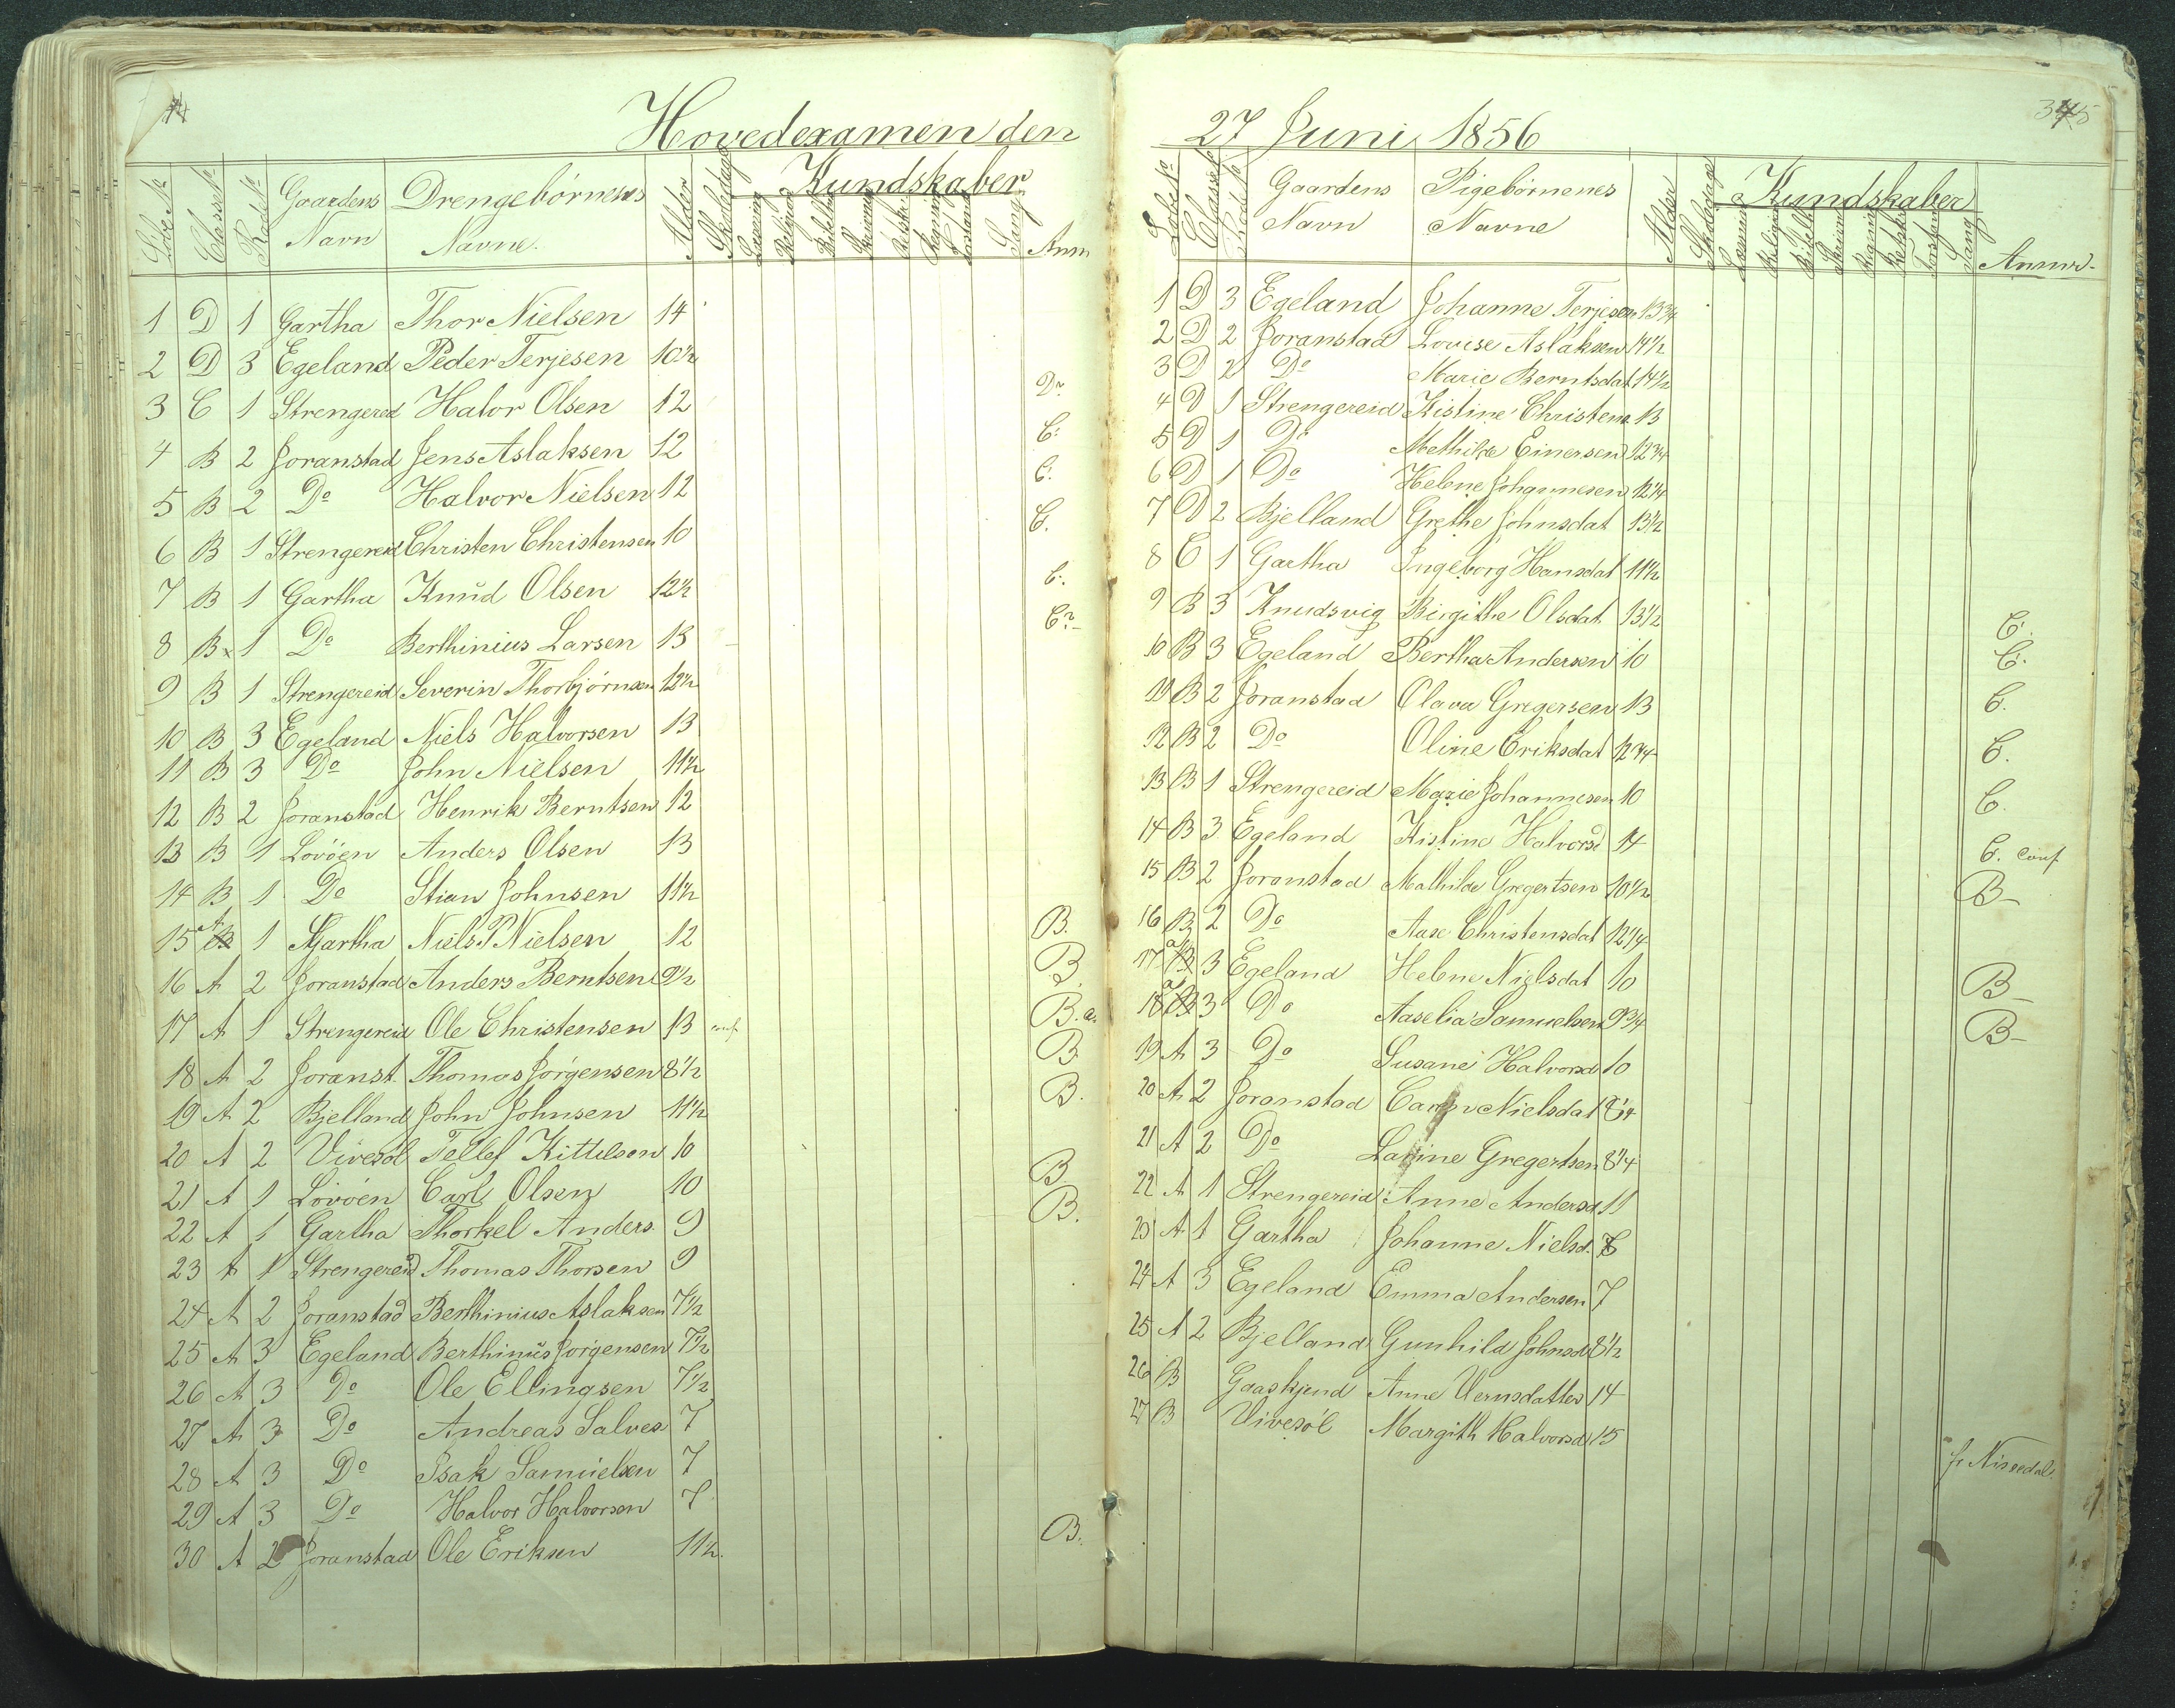 Hovedexamen den
Løbe No Classe No Rode No Gaardens Navn Drengebørnenes Navne. Alder Skoledage Kundskaber Læsning Religion Sang Anm
1 D 1 Gartha Thor Nielsen 14
2 D 3 Egeland Peder Terjesen 10½
3 C 1 Strengereid Halvor Olsen 12 D.
4 B 2 Joranstad Jens Aslaksen 12 C.
5 B 2 Do Halvor Nielsen 12 C.
6 B 1 Strengereid Christen Christensen 10 C.
7 B 1 Gartha Knud Olsen 12½ C.
8 B 1 Do Berthinius Larsen 13 C?
9 B 1 Strengereid Severin Thorbjørnsen 12½
10 B 3 Egeland Niels Halvorsen 13
11 B 3 Do John Nielsen 11½
12 B 2 Joranstad Henrik Berntsen 12
13 B 1 Lovöen Anders Olsen 13
14 B 1 Do Stian Johnsen 11½
15 A 1 Gartha Niels P Nielsen 12 B.
16 A 2 Joranstad Anders Berntsen 9½ B.
17 A 1 Strengereid Ole Christensen 13 conf. B.a.
18 A 2 Joranst. Thomas Jørgensen 8½ B
19 A 2 Bjelland John Johnsen 11½ B.
20 A 2 Vivesöl Tellef Kittelsen 10
21 A 1 Lovöen Carl Olsen 10 B.
22 A 1 Gartha Thorkel Anders. 9 B.
23 A 1 Strengereid Thomas Thorsen 9
24 A 2 Joranstad Berthinius Aslaksen 7½
25 A 3 Egeland Berthinus Jørgensen 7½
26 A 3 Do Ole Ellingsen 7½
27 A 3 Do Andreas Salves 7
28 A 3 Do Isak Samuelsen 7
29 A 3 Do Halvor Halvorsen 7
30 A 2 Joranstad Ole Eriksen 11½ B.
27 Juni 1856
Løbe No Classe No Rode No Gaardens Navn Pigebørnenes Navne Alder Skoledage Kundskaber Sang Anmr.
1 D 3 Egeland Johanne Terjesen 13¾
2 D 2 Joranstad Lovise Aslaksen 14½
3 D 2 Do Marie Berntsdat 14½
4 D 1 Strengereid Kistine Christens 13
5 D 1 Do Methilde Einersen 12¾
6 D 1 Do Helene Johannesen 12¼
7 D 2 Bjelland Grethe Johnsdat 13½
8 C 1 Gartha Ingeborg Hansdat 11½
9 B 3 Knudsvig Birgithe Olsdat 13½ C.
10 B 3 Egeland Bertha Andersen 10 C.
11 B 2 Joranstad Olava Gregersen 13 C.
12 B 2 Do Oline Eriksdat 12¾ C.
13 B 1 Strengereid Marie Johannesen 10 C.
14 B 3 Egeland Kistine Halvorsd 14 C. conf
15 B 2 Joranstad Mathilde Gregertsen 10½ B
16 B 2 Do Aase Christensdat 12¼
17 a 3 Egeland Helene Nielsdat 10 B
18 a 3 Do Aaselia Samuelsen 9¾ B
19 A 3 Do Susane Halvorsd 10
20 A 2 Joranstad Caren Nielsdat 8¼
21 A 2 Do Lavine Gregertsen 8¼
22 A 1 Strengereid Anne Andersd 11
23 A 1 Gartha Johanne Nielsd.
24 A 3 Egeland Emma Andersen 7
25 A 2 Bjelland Gunhild Johnsd 8½
26 B Gaaskjend Anne Vernsdatter 14
27 B Vivesöl Margith Halvorsd 15 fr Nissedal